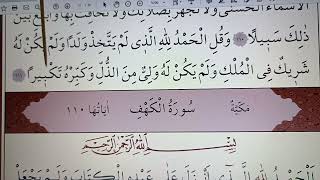 الْاَسْمَٓاءُ الْحُسْنٰى وَلَا تَجْهَرْ بِصَلَاتِكَ وَلَا تُخَافِتْ بِهَا وَابْتَغِ بَيْنَ
ذٰلِكَ سَب۪يلًا ﴿١١٠﴾ وَقُلِ الْحَمْدُ لِلّٰهِ الَّذ۪ي لَمْ يَتَّخِذْ وَلَدًا وَلَمْ يَكُنْ لَهُ
شَر۪يكٌ فِي الْمُلْكِ وَلَمْ يَكُنْ لَهُ وَلِيٌّ مِنَ الذُّلِّ وَكَبِّرْهُ تَكْب۪يرًا ﴿١١١﴾
مَكِّيَّةٌ سُورَةُ الْكَهْفِ اٰيَاتُهَا ١١٠
بِسْمِ اللّٰهِ الرَّحْمٰنِ الرَّح۪يمِ
اَلْحَمْدُ لِلّٰهِ الَّذ۪ٓي اَنْزَلَ عَلٰى عَبْدِهِ الْكِتَابَ وَلَمْ يَجْعَلْ